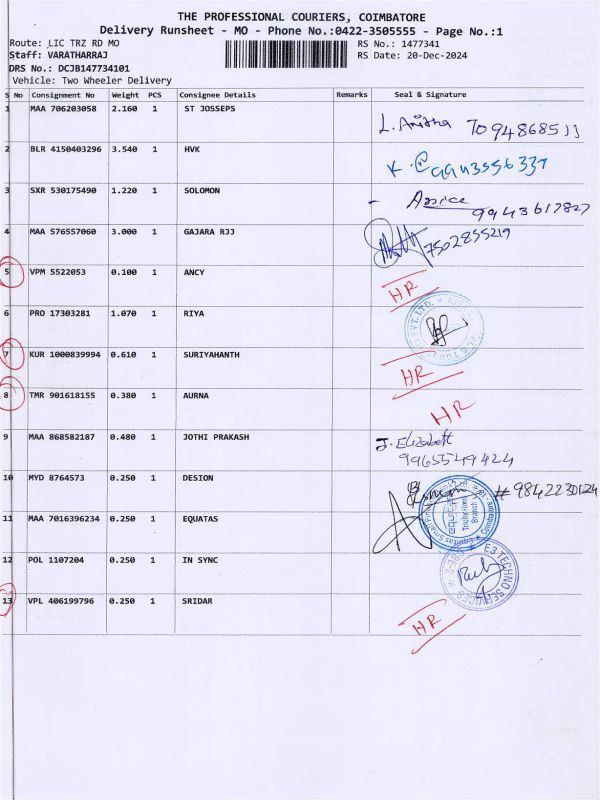 THE PROFESSIONAL COURIERS, COIMBATORE
Delivery Runsheet - MO - Phone No.:0422-3505555 - Page No.:1
Route: LIC TRZ RD MO RS No.: 1477341
Staff: VARATHARRAJ RS Date: 20-Dec-2024
DRS No.: DCJB147734101
Vehicle: Two Wheeler Delivery
S No Consignment No Weight PCS Consignee Details Remarks Seal & Signature
1 MAA 706203058 2.160 1 ST JOSSEPS L. Anitha 7094868511
2 BLR 4150403296 3.540 1 HVK K. 9943556337
3 SXR 530175490 1.220 1 SOLOMON 9943617827
4 MAA 576557060 3.000 1 GAJARA RJJ 7502855219
5 VPM 5522053 0.100 1 ANCY HR
6 PRO 17303281 1.070 1 RIYA PVT. LTD.
7 KUR 1000839994 0.610 1 SURIYAHANTH HR
8 TMR 901618155 0.380 1 AURNA HR
9 MAA 868582187 0.480 1 JOTHI PRAKASH J. Elizabeth
9965549424
10 MYD 8764573 0.250 1 DESION # 9842230124
11 MAA 7016396234 0.250 1 EQUATAS Equitas Small Branch Coimbatore
12 POL 1107204 0.250 1 IN SYNC E3 TECHNO SERVICES
13 VPL 406199796 0.250 1 SRIDAR HR